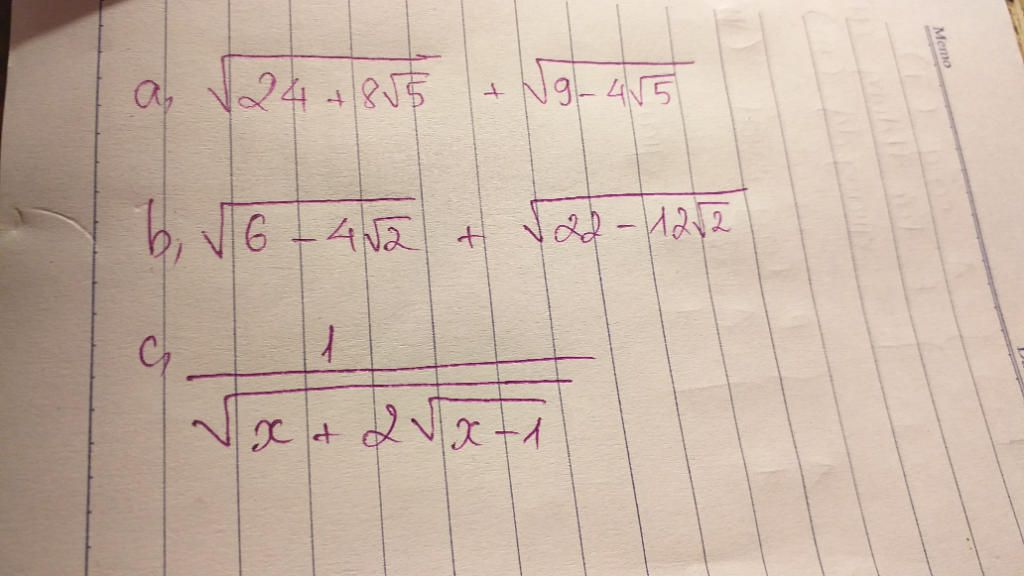 a, √(24 + 8√5) + √(9 - 4√5)
b, √(6 - 4√2) + √(22 - 12√2)
c, 1/√(x + 2√(x-1))
Memo